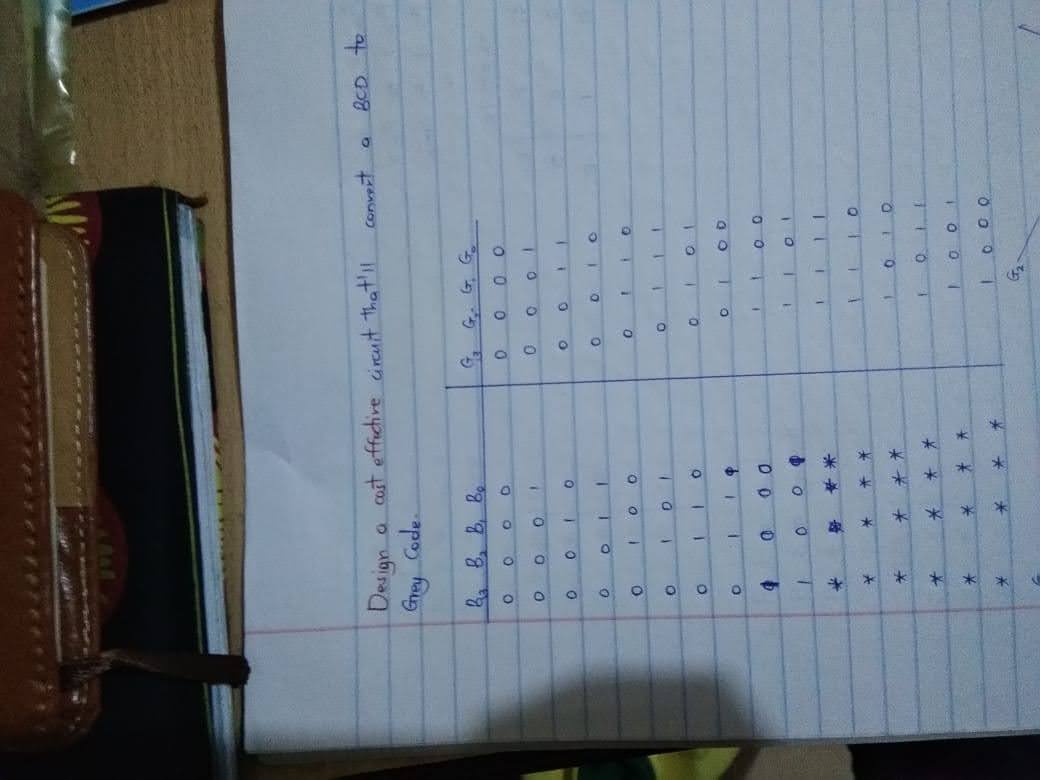 Design a cost effective circuit that'll convert a BCD to
Grey Code.
B3 B2 B1 B0 G3 G2 G1 G0
0 0 0 0 0 0 0 0
0 0 0 1 0 0 0 1
0 0 1 0 0 0 1 1
0 0 1 1 0 0 1 0
0 1 0 0 0 1 1 0
0 1 0 1 0 1 1 1
0 1 1 0 0 1 0 1
0 1 1 1 0 1 0 0
1 0 0 0 1 1 0 0
1 0 0 1 1 1 0 1
* * * * 1 1 1 1
* * * * 1 1 1 0
* * * * 1 0 1 0
* * * * 1 0 1 1
* * * * 1 0 0 1
* * * * 1 0 0 0
G2